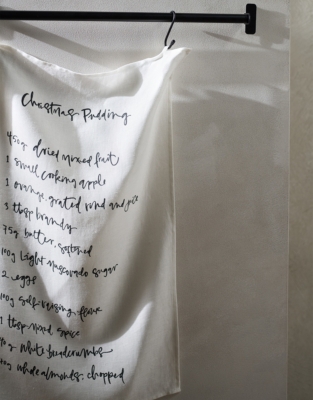 Christmas Pudding
450g dried mixed fruit
1 small cooking apple
1 orange, grated rind and juice
3 tbsp brandy
75g butter, softened
100g light muscovado sugar
2 eggs
100g self-raising flour
1 tbsp mixed spice
g white breadcrumbs
g whole almonds, chopped